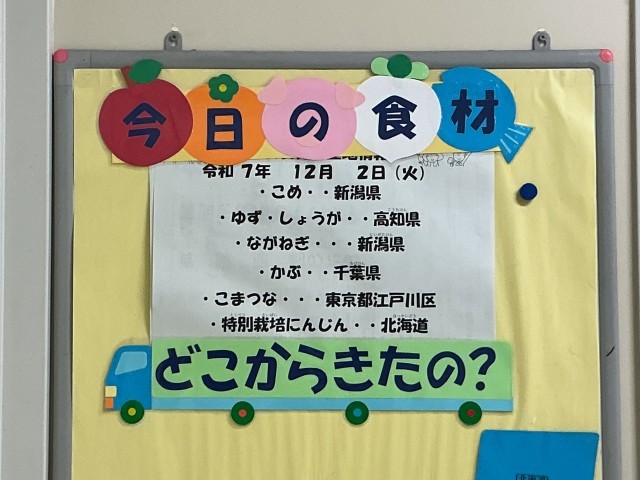 今日の食材
令和 7年 12月 2日(火)
・こめ・・新潟県
・ゆず・しょうが・・高知県
・ながねぎ・・・新潟県
・かぶ・・千葉県
・こまつな・・・東京都江戸川区
・特別栽培にんじん・・北海道
どこからきたの?